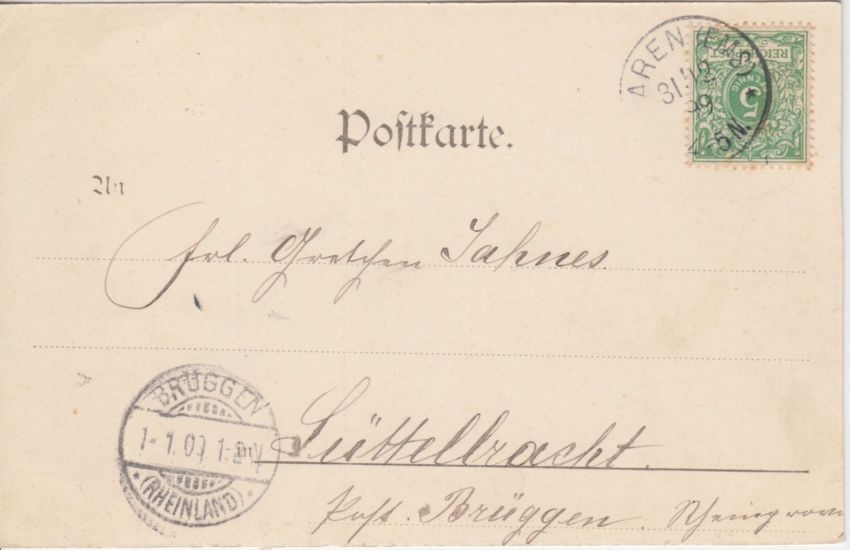 AREN (EMS)
31.12
99
5 N.
REICHSPOST
5
PFENNIG
Postkarte.
An
Frl. Gretchen Jahnes.
BRÜGGEN
1-1.00 1-2 V
* (RHEINLAND) *
in Lüttelbracht.
Post. Brüggen. Rheinprovin